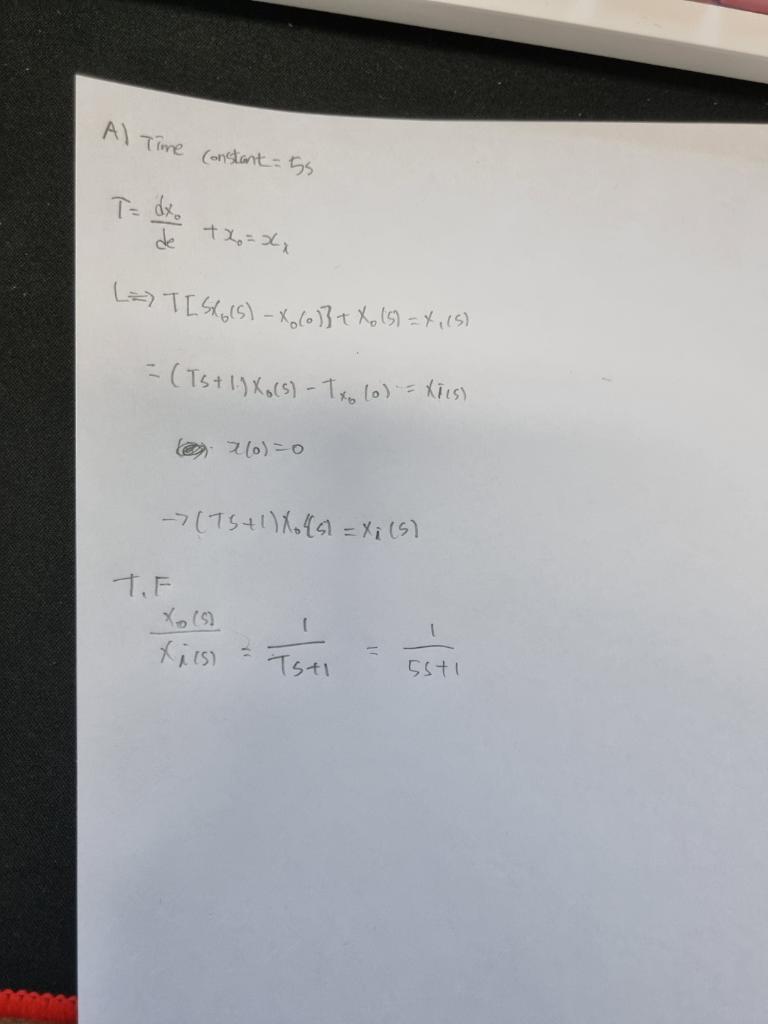 A) Time constant = 5s
T = dx₀/de + x₀ = xₓ
L => T[sx₀(s) - x₀(0)] + x₀(s) = x₁(s)
= (Ts+1)x₀(s) - Tx₀(0) = xi(s)
x(0)=0
→ (Ts+1)X₀(s) = xi(s)
T.F
x₀(s)/xi(s) = 1/Ts+1 = 1/5s+1